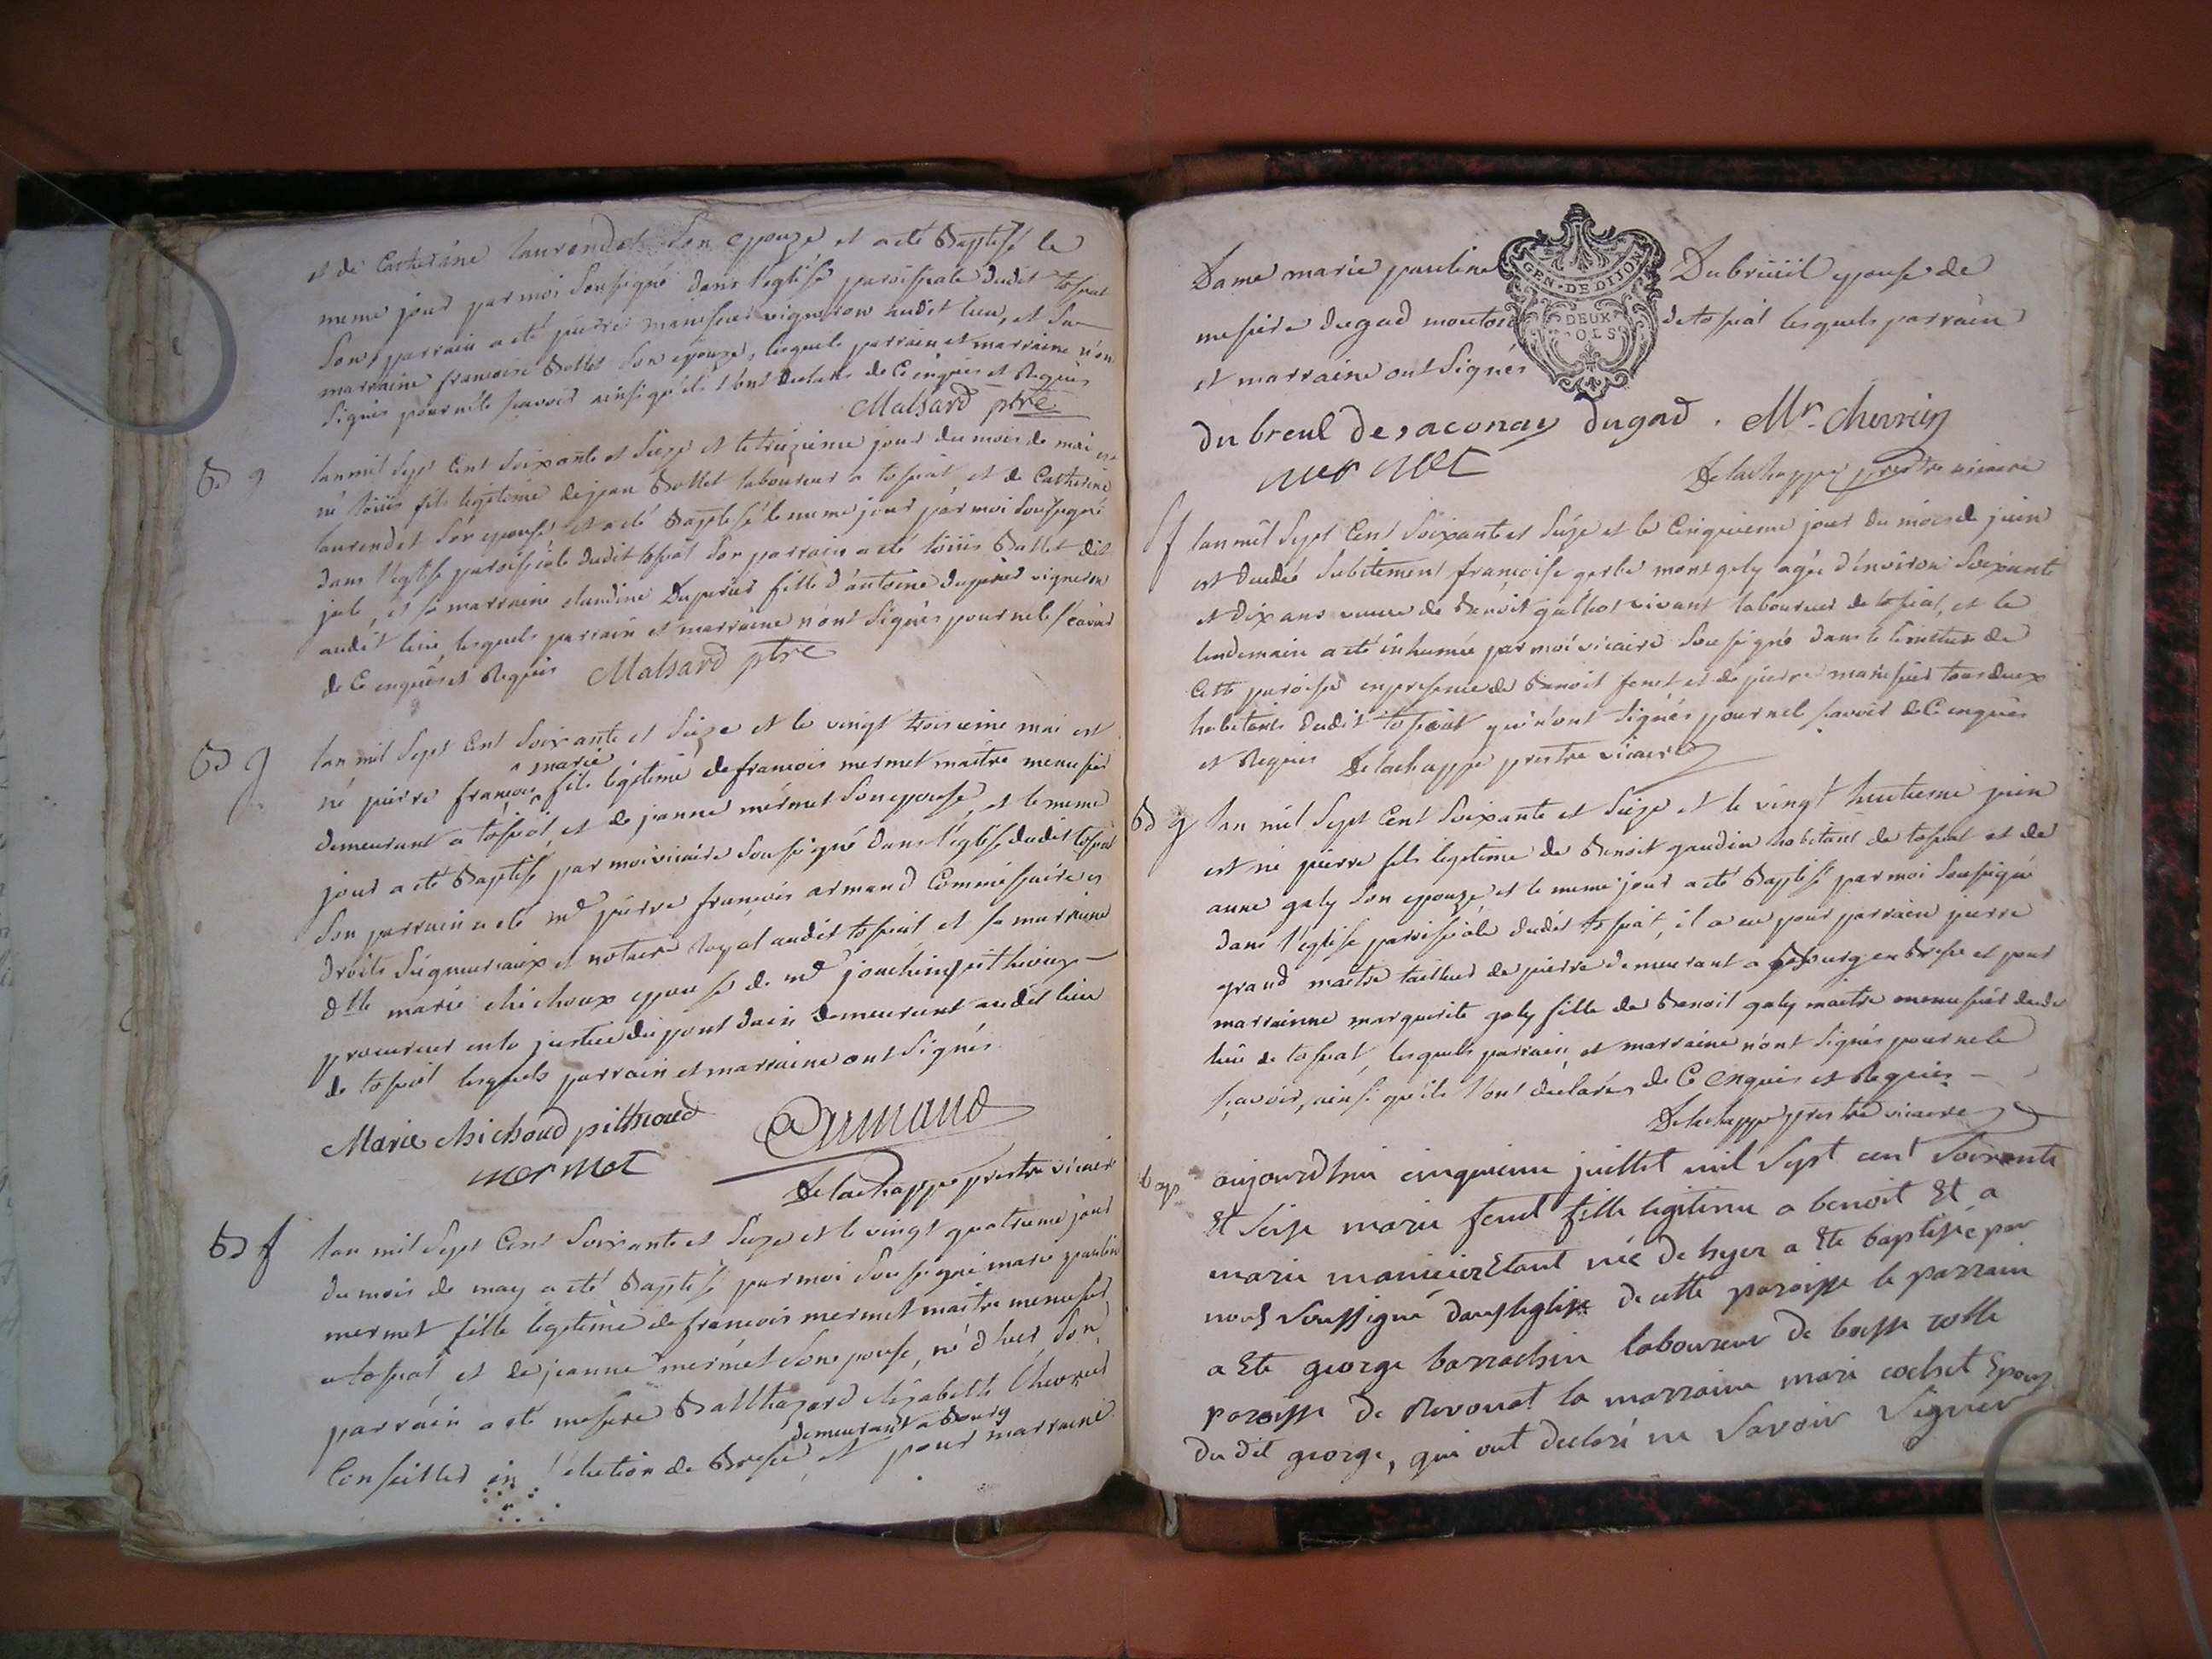 et de Catherine laurendet son epouze et a eté Baptisé le
meme jour par moi Soussigné dans l'eglise paroissiale dudit tossiat
Son parrain a eté pierre manissier vigneron audit lieu, et Sa
marraine francoise Bollet Son epouze, lesquels parrain et marraine n'on
Signés pour ne le scavoir ainsi qu'ils l'ont declarés de Ce enquis et Requis
Malsard ptre
B g
lan mil Sept Cent Soixante et Seize et le treizieme jour du mois de mai est
né loüis fils legitime de jean Bollet laboureur a tossiat, et de Catherine
laurendet Son epouse, et a eté Baptisé le meme jour par moi Soussigné
dans l'eglise paroissiale dudit tossiat Son parrain a eté loüis Bollet dit
jule, et sa marraine claudine Duperier fille d'antoine duperier vigneron
audit lieu, lesquels parrain et marraine n'ont Signés pour ne le scavoir
de Ce enquis et Requis Malsard ptre
B g
lan mil Sept Cent Soixante et Seize et le vingt troisieme mai est
marie
né pierre francois fils legitime de francois mermet maitre menusier
demeurant a tossiat, et de jeanne mermet Son epouse, et le meme
jour a eté Baptisé par moi vicaire Soussigné dans l'eglise dudit tossiat
Son parrain a eté mr pierre francois armand Commissaire es
droits Seigneuriaux et notaire Royal audit tossiat et Sa marraine
dlle marie chichoux epouse de mr joachim pithioux
procureur en la justice du pont dain demeurant audit lieu
de tossiat lesquels parrain et marraine ont Signés
Marie chichoud pithioud Armand
mermet
Delachappe prestre vicaire
B f
lan mil Sept Cent Soixante et Seize et le vingt quatrieme jour
du mois de may a eté Baptisé par moi Soussigné marie pauline
mermet fille legitime de francois mermet maitre menusier
a tossiat et de jeanne mermet Son epouse, né d'hier, Son
parrain a eté messire Balthazard elizabette Chevrier
demeurant a Bourg
Conseiller en l'election de Bresse et pour marraine
Dame marie pauline Dubrüiil epouse de
GEN·DE DIJON
DEUX SOLS
messire dugad de tossiat lesquels parrain
et marraine ont Signés
du breul de saconay dugad . Mr. chevrier
mermet
Delachappe prestre vicaire
Sf
lan mil Sept Cent Soixante et Seize et le Cinquieme jour du mois de juin
est decedée Subitement francoise gerbe mongely agée d'environ Soixante
et dix ans veuve de Benoit galliot vivant laboureur de tossiat, et le
lendemain a eté inhumée par moi vicaire Soussigné dans le Cimetiere de
Cette paroisse en presence de Benoit fenet et de pierre manissier tous deux
habitants dudit tossiat qui n'ont Signés pour ne le scavoir de Ce enquis
et Requis Delachappe prestre vicaire
B g
lan mil Sept Cent Soixante et Seize et le vingt huitieme juin
est né pierre fils legitime de Benoit gaudin habitant de tossiat et de
anne galy Son epouze et le meme jour a eté Baptisé par moi Soussigné
dans l'eglise paroissiale dudit tossiat, il a eu pour parrain pierre
grand maitre tailleur de pierre demeurant a Bourg en Bresse et pour
marrainne marguerite galy fille de Benoit galy maitre menusier dudit
lieu de tossiat, lesquels parrain et marraine n'ont Signés pour ne le
scavoir, ainsi qu'ils l'ont declarés de Ce Enquis et Requis
Delachappe prestre vicaire
bap
aujourdhui cinquieme juillet mil Sept cent Soixante
Et Seise marie fenet fille legitime a benoit Et a
marie manicier Etant née de hyer a Ete baptisée par
nous Soussigné dans leglise de cette paroisse le parrain
a Ete george barrachin laboureur de basse
paroisse de Revonat la marraine marie cochet Epouse
du dit george, qui ont declaré ne Savoir Signer